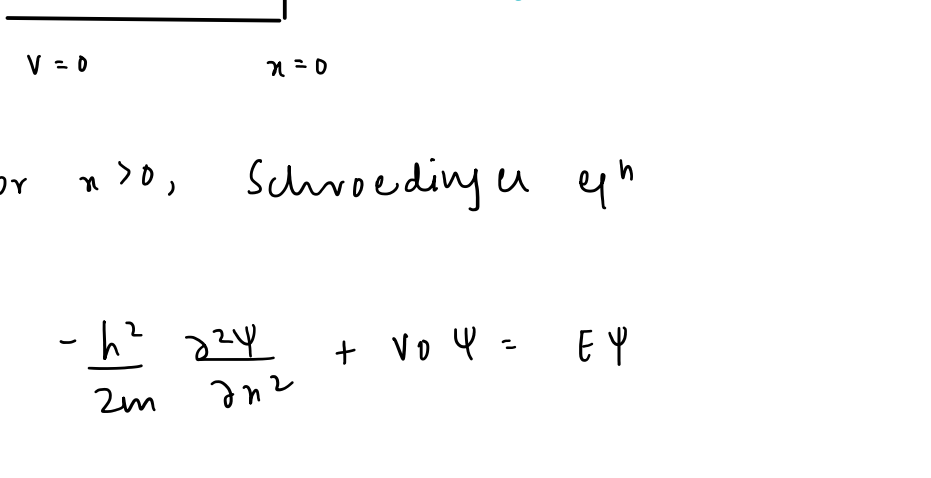 V = 0 x = 0
or x > 0, Schroedinger eqn
- h² / 2m ∂²Ψ / ∂x² + V0 Ψ = E Ψ